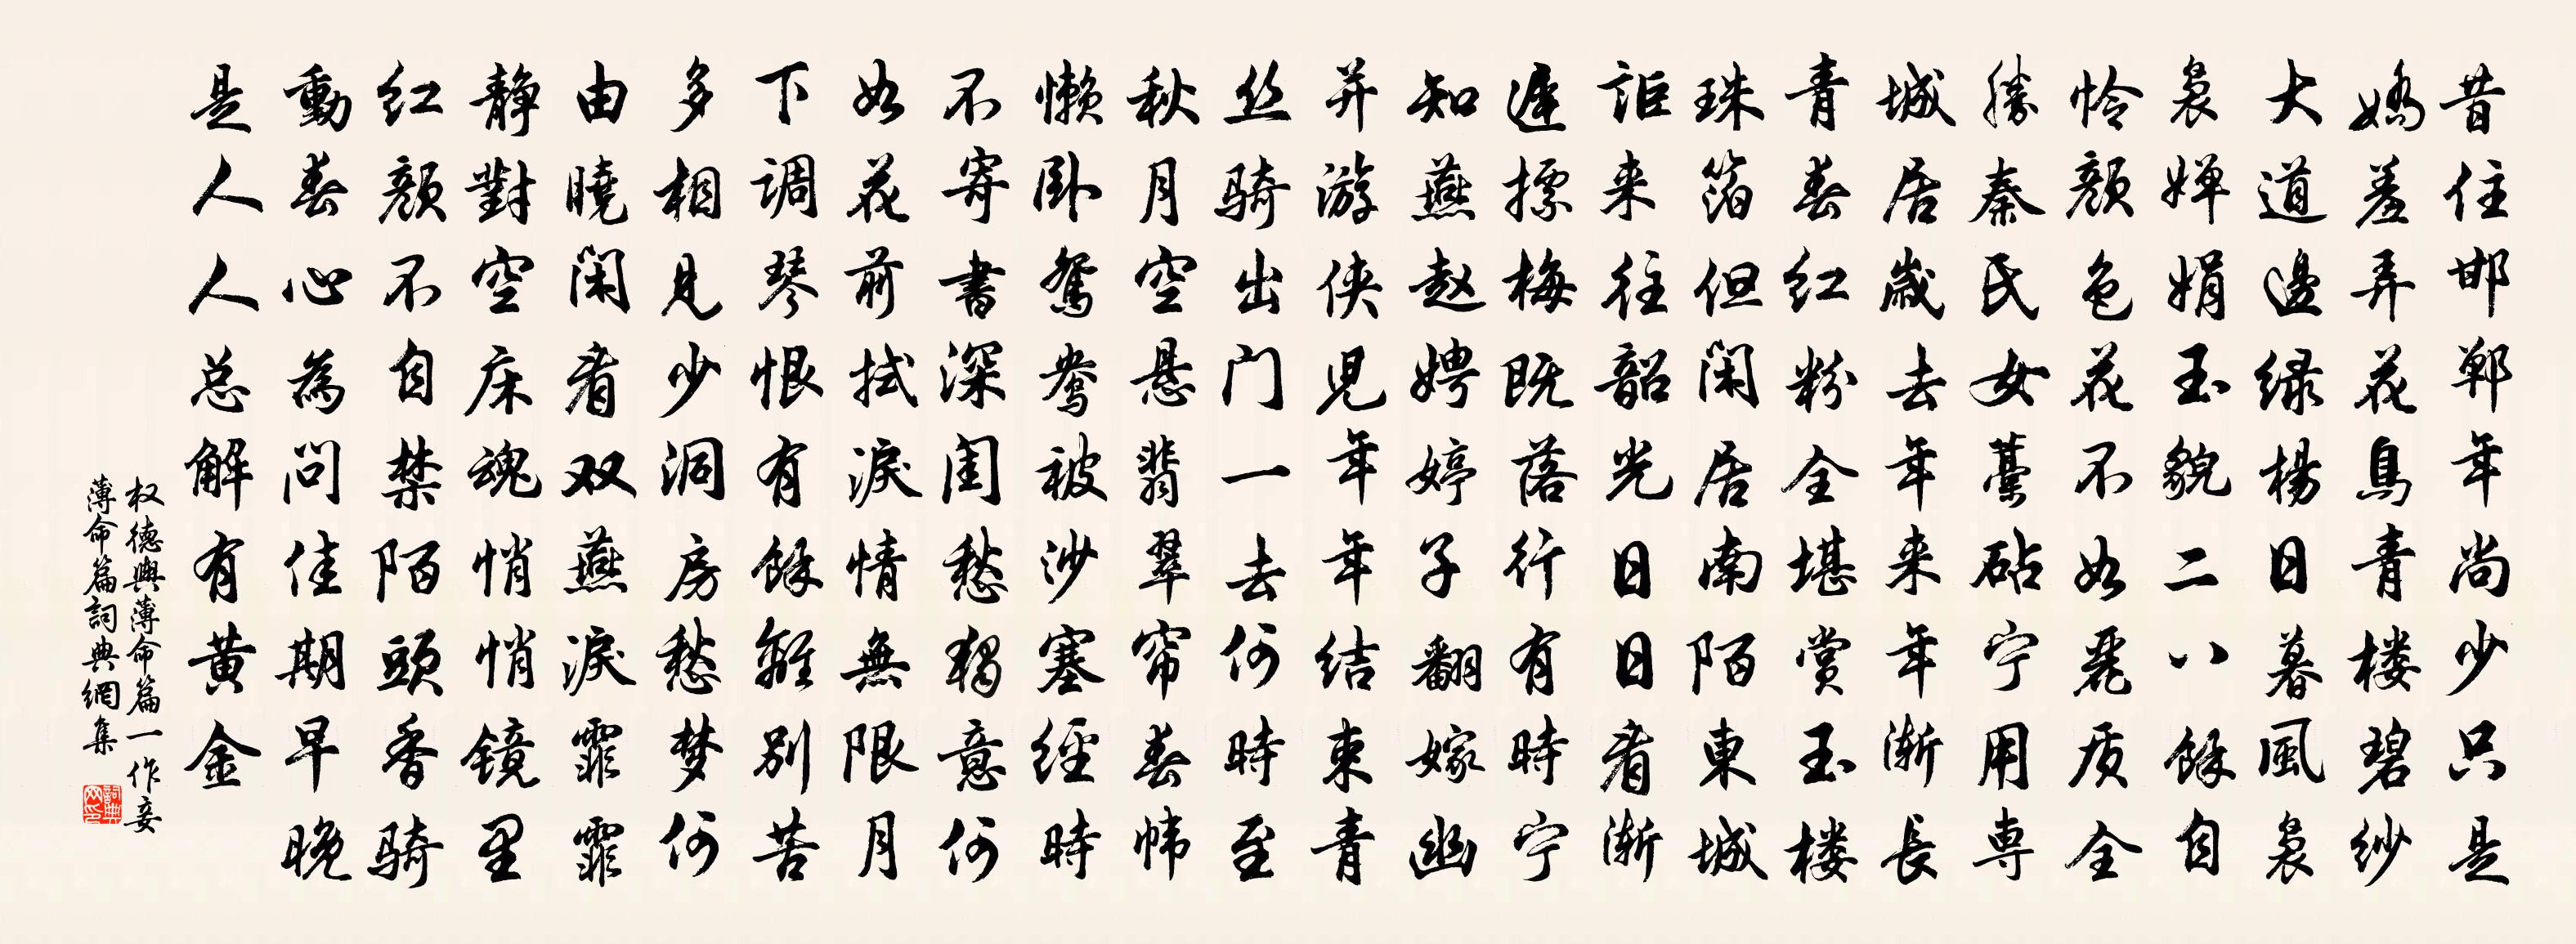 昔住邯郸年尚少只是
嬌羞弄花鳥青楼碧纱
大道邊绿楊日暮風袅
袅婵娟玉貌二八餘自
怜颜色花不如麗质全
勝秦氏女藁砧宁用専
城居歲去年来年渐長
青春红粉全堪赏玉楼
珠箔但闲居南陌東城
詎来往韶光日日看渐
遲摽梅既落行有時宁
知燕赵娉婷子翻嫁幽
并游侠児年年结束青
丝骑出门一去何時至
秋月空悬翡翠帘春帏
懒卧鸳鸯被沙塞經時
不寄書深闺愁獨意何
如花前拭淚情無限月
下調琴恨有餘離别苦
多相見少洞房愁梦何
由曉闲看双燕淚霏霏
靜對空床魂悄悄镜里
红颜不自禁陌頭香骑
動春心為问佳期早晚
是人人总解有黄金
权德舆薄命篇一作妾
薄命篇詞典網集
詞典网印